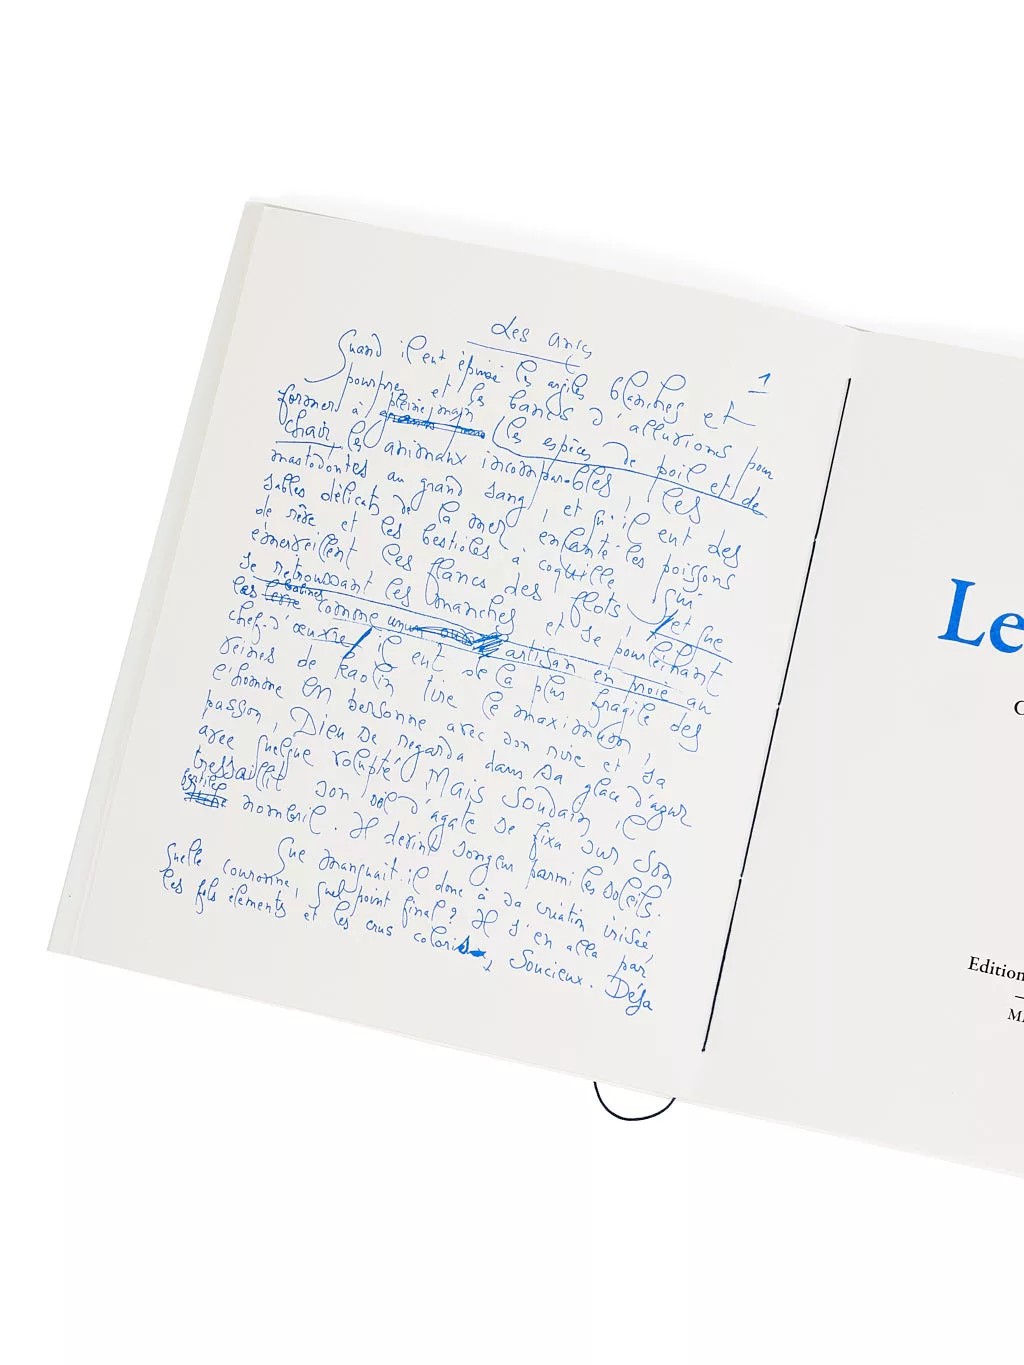 Les anis
1
Quand il eut épuisé les argiles blanches et
pourpres et les bancs d'alluvions pour
former à pleine main les espèces de poil et de
chair, les animaux incomparables, les
mastodontes au grand sang, et qu'il eut des
sables délicats de la mer enfanté les poissons
de rêve et les bestioles à coquille qui
émerveillent les flancs des flots, et que
se retroussant les manches et se pourléchant
les babines comme un artisan en proie au
chef-d'œuvre, il eut de la plus fragile des
veines de kaolin tiré le maximum,
l'homme en personne avec son rire et sa
passion, Dieu se regarda dans sa glace d'azur
avec quelque volupté. Mais soudain il
tressaillit son œil d'agate se fixa sur son
nombril. Il devint songeur parmi les soleils.
Que manquait-il donc à sa création irisée
Quelle couronne, quel point final? Il s'en alla par
les fols éléments et les crus coloris, soucieux. Déjà
Le
C
Edition
MA